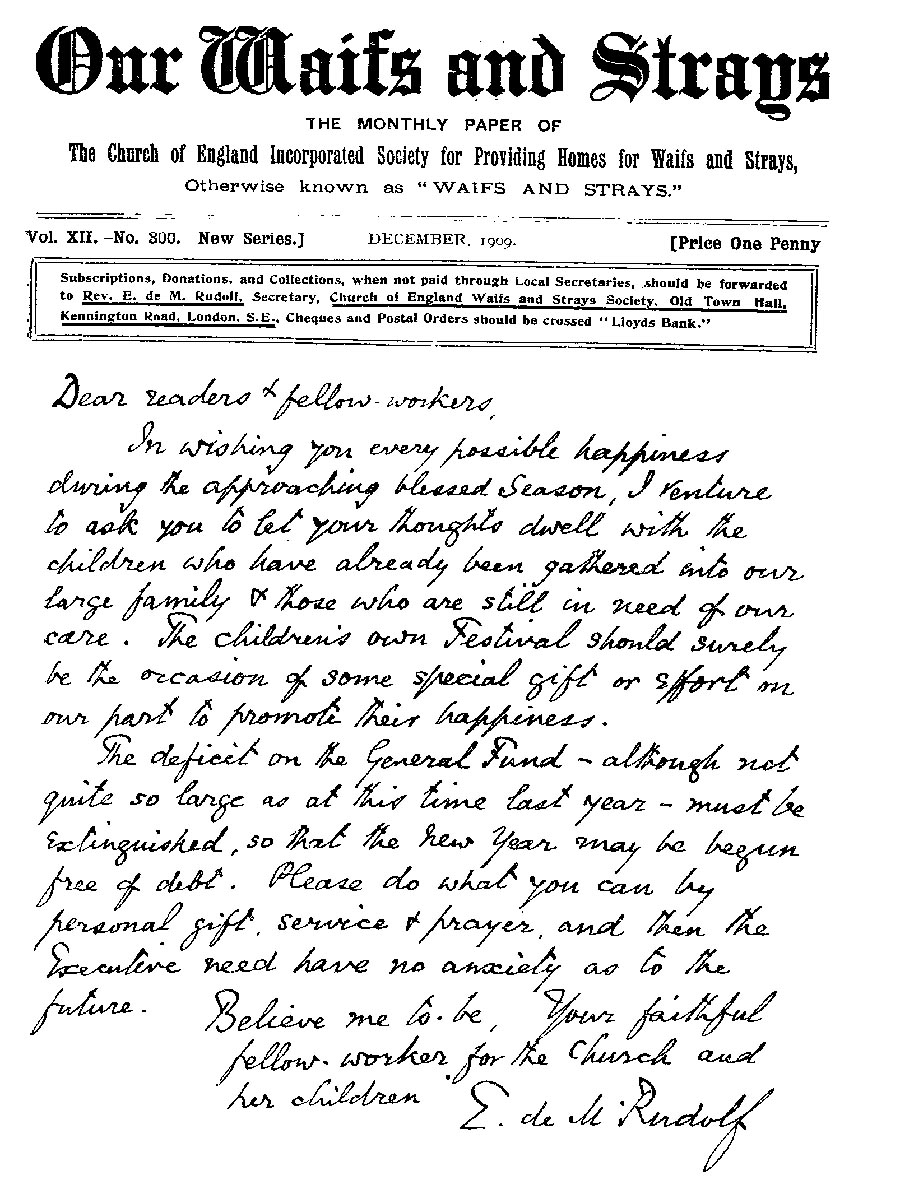 Our Waifs and Strays
THE MONTHLY PAPER OF
The Church of England Incorporated Society for Providing Homes for Waifs and Strays,
Otherwise known as "WAIFS AND STRAYS."
Vol. XII. –No. 300. New Series.] DECEMBER, 1909. [Price One Penny
Subscriptions, Donations, and Collections, when not paid through Local Secretaries, should be forwarded
to Rev. E. de M. Rudolf, Secretary, Church of England Waifs and Strays Society, Old Town Hall,
Kennington Road, London, S.E., Cheques and Postal Orders should be crossed "Lloyds Bank."
Dear readers & fellow-workers,
In wishing you every possible happiness
during the approaching blessed Season, I venture
to ask you to let your thoughts dwell with the
children who have already been gathered into our
large family & those who are still in need of our
care. The children's own Festival should surely
be the occasion of some special gift or effort on
our part to promote their happiness.
The deficit on the General Fund – although not
quite so large as at this time last year – must be
extinguished, so that the New Year may be begun
free of debt. Please do what you can by
personal gift, service & prayer, and then the
Executive need have no anxiety as to the
future. Believe me to be, Your faithful
fellow-worker for the Church and
her children
E. de M Rudolf